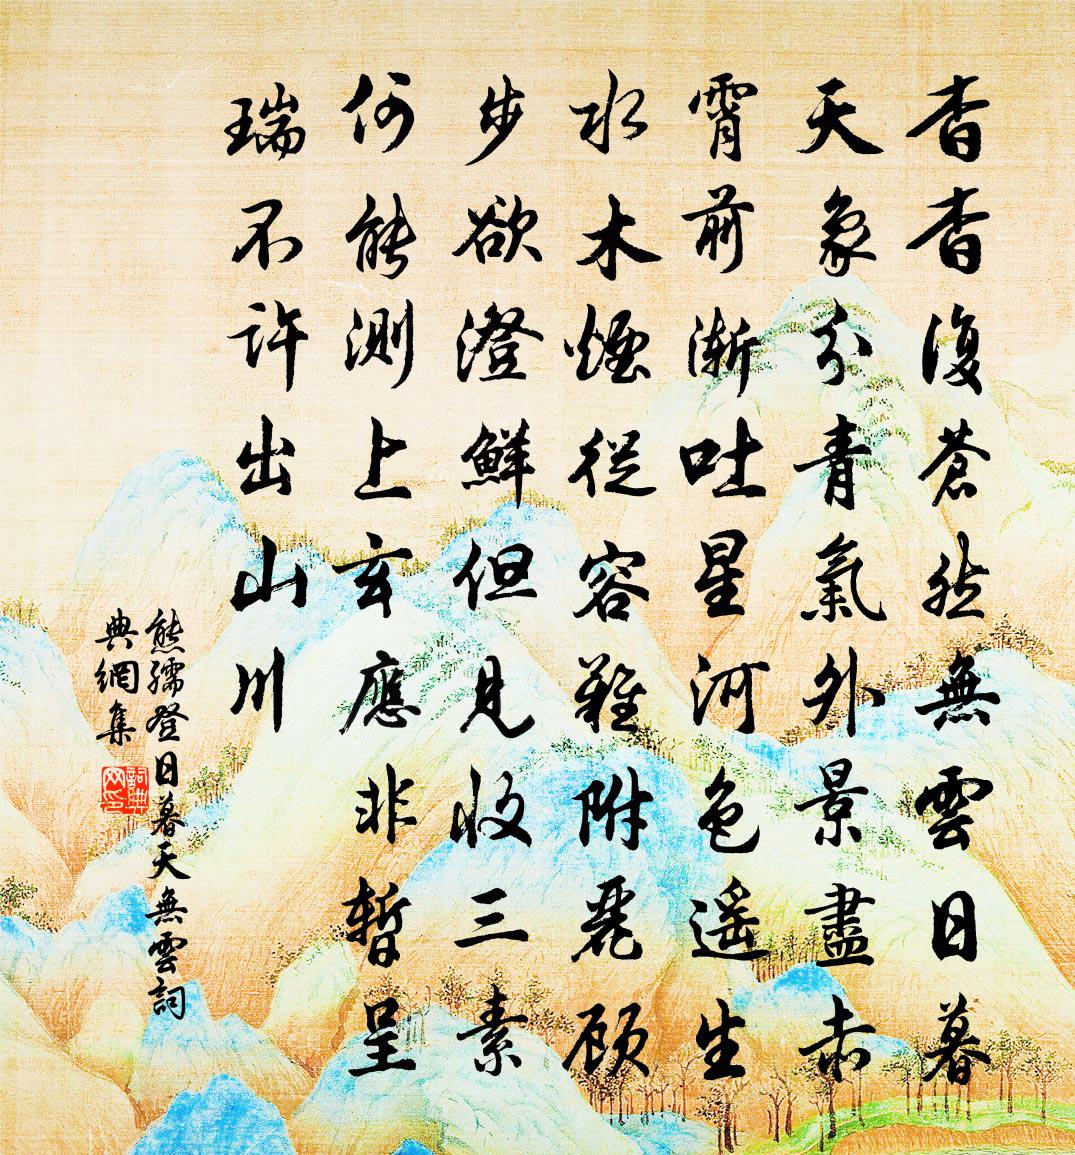 杳杳復蒼然無雲日暮
天象分青氣外景盡赤
霄前漸吐星河色遙生
水木煙從容難附麗顧
步欲澄鮮但見收三素
何能測上玄應非暫呈
瑞不許出山川
熊孺登日暮天無雲詞
典網集
詞典网印